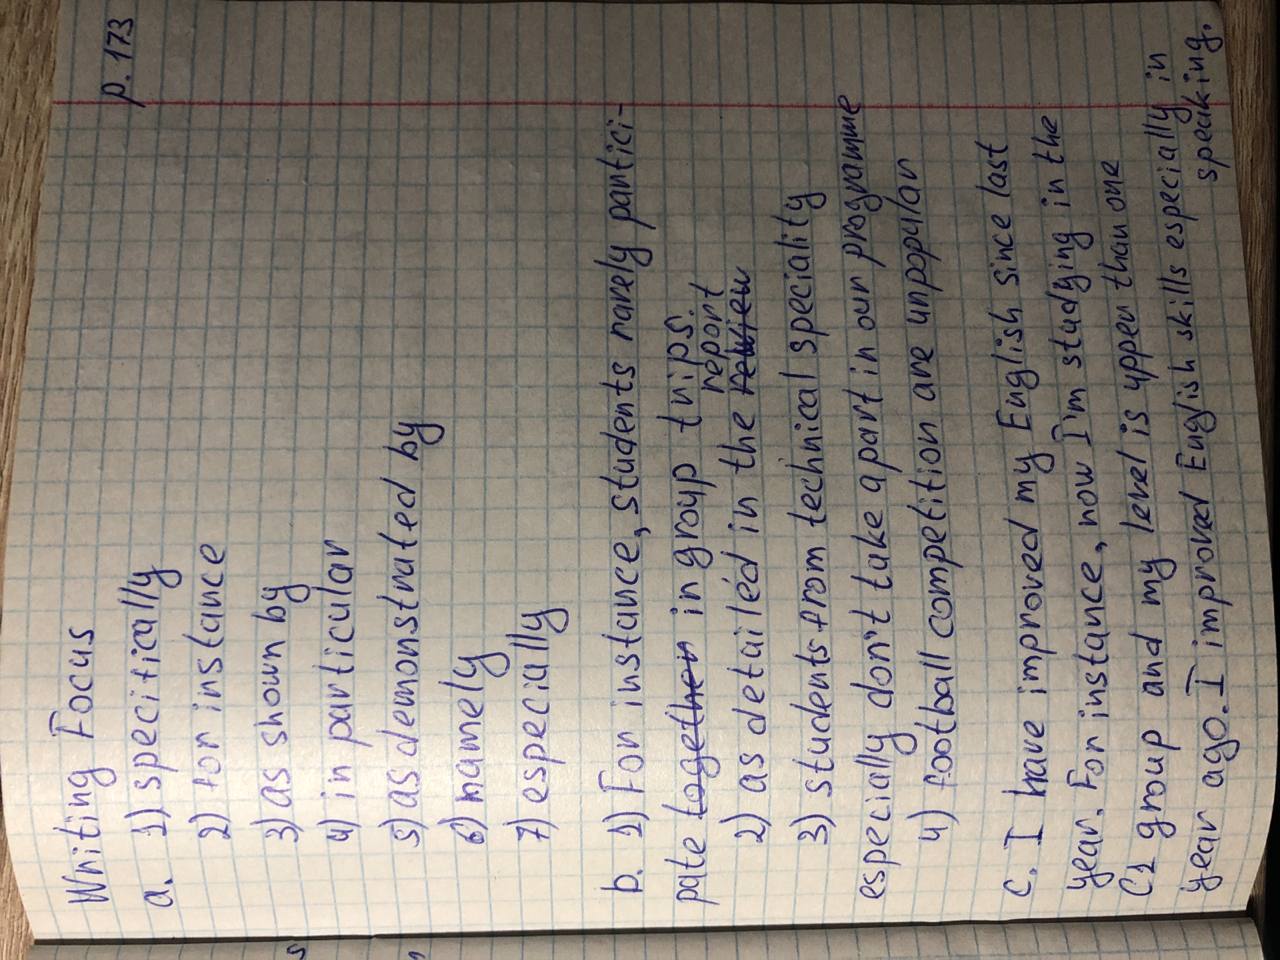 p. 173
Writing Focus
a. 1) specifically
2) for instance
3) as shown by
4) in particular
5) as demonstrated by
6) namely
7) especially
b. 1) For instance, students rarely partici-
pate together in group trips.
report
2) as detailed in the review
3) students from technical speciality
especially don't take apart in our programme
4) football competition are unpopular
c. I have improved my English since last
year. For instance, now I'm studying in the
C1 group and my level is upper than one
year ago. I improved English skills especially in
speaking.